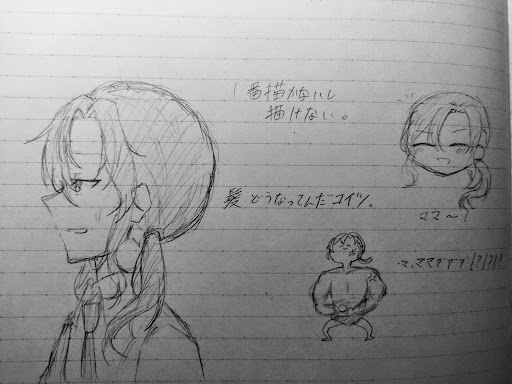 1番描かないし
描けない。
髪どうなってんだコイツ。
ママ〜?
マ、ママァァァ!?!?!?